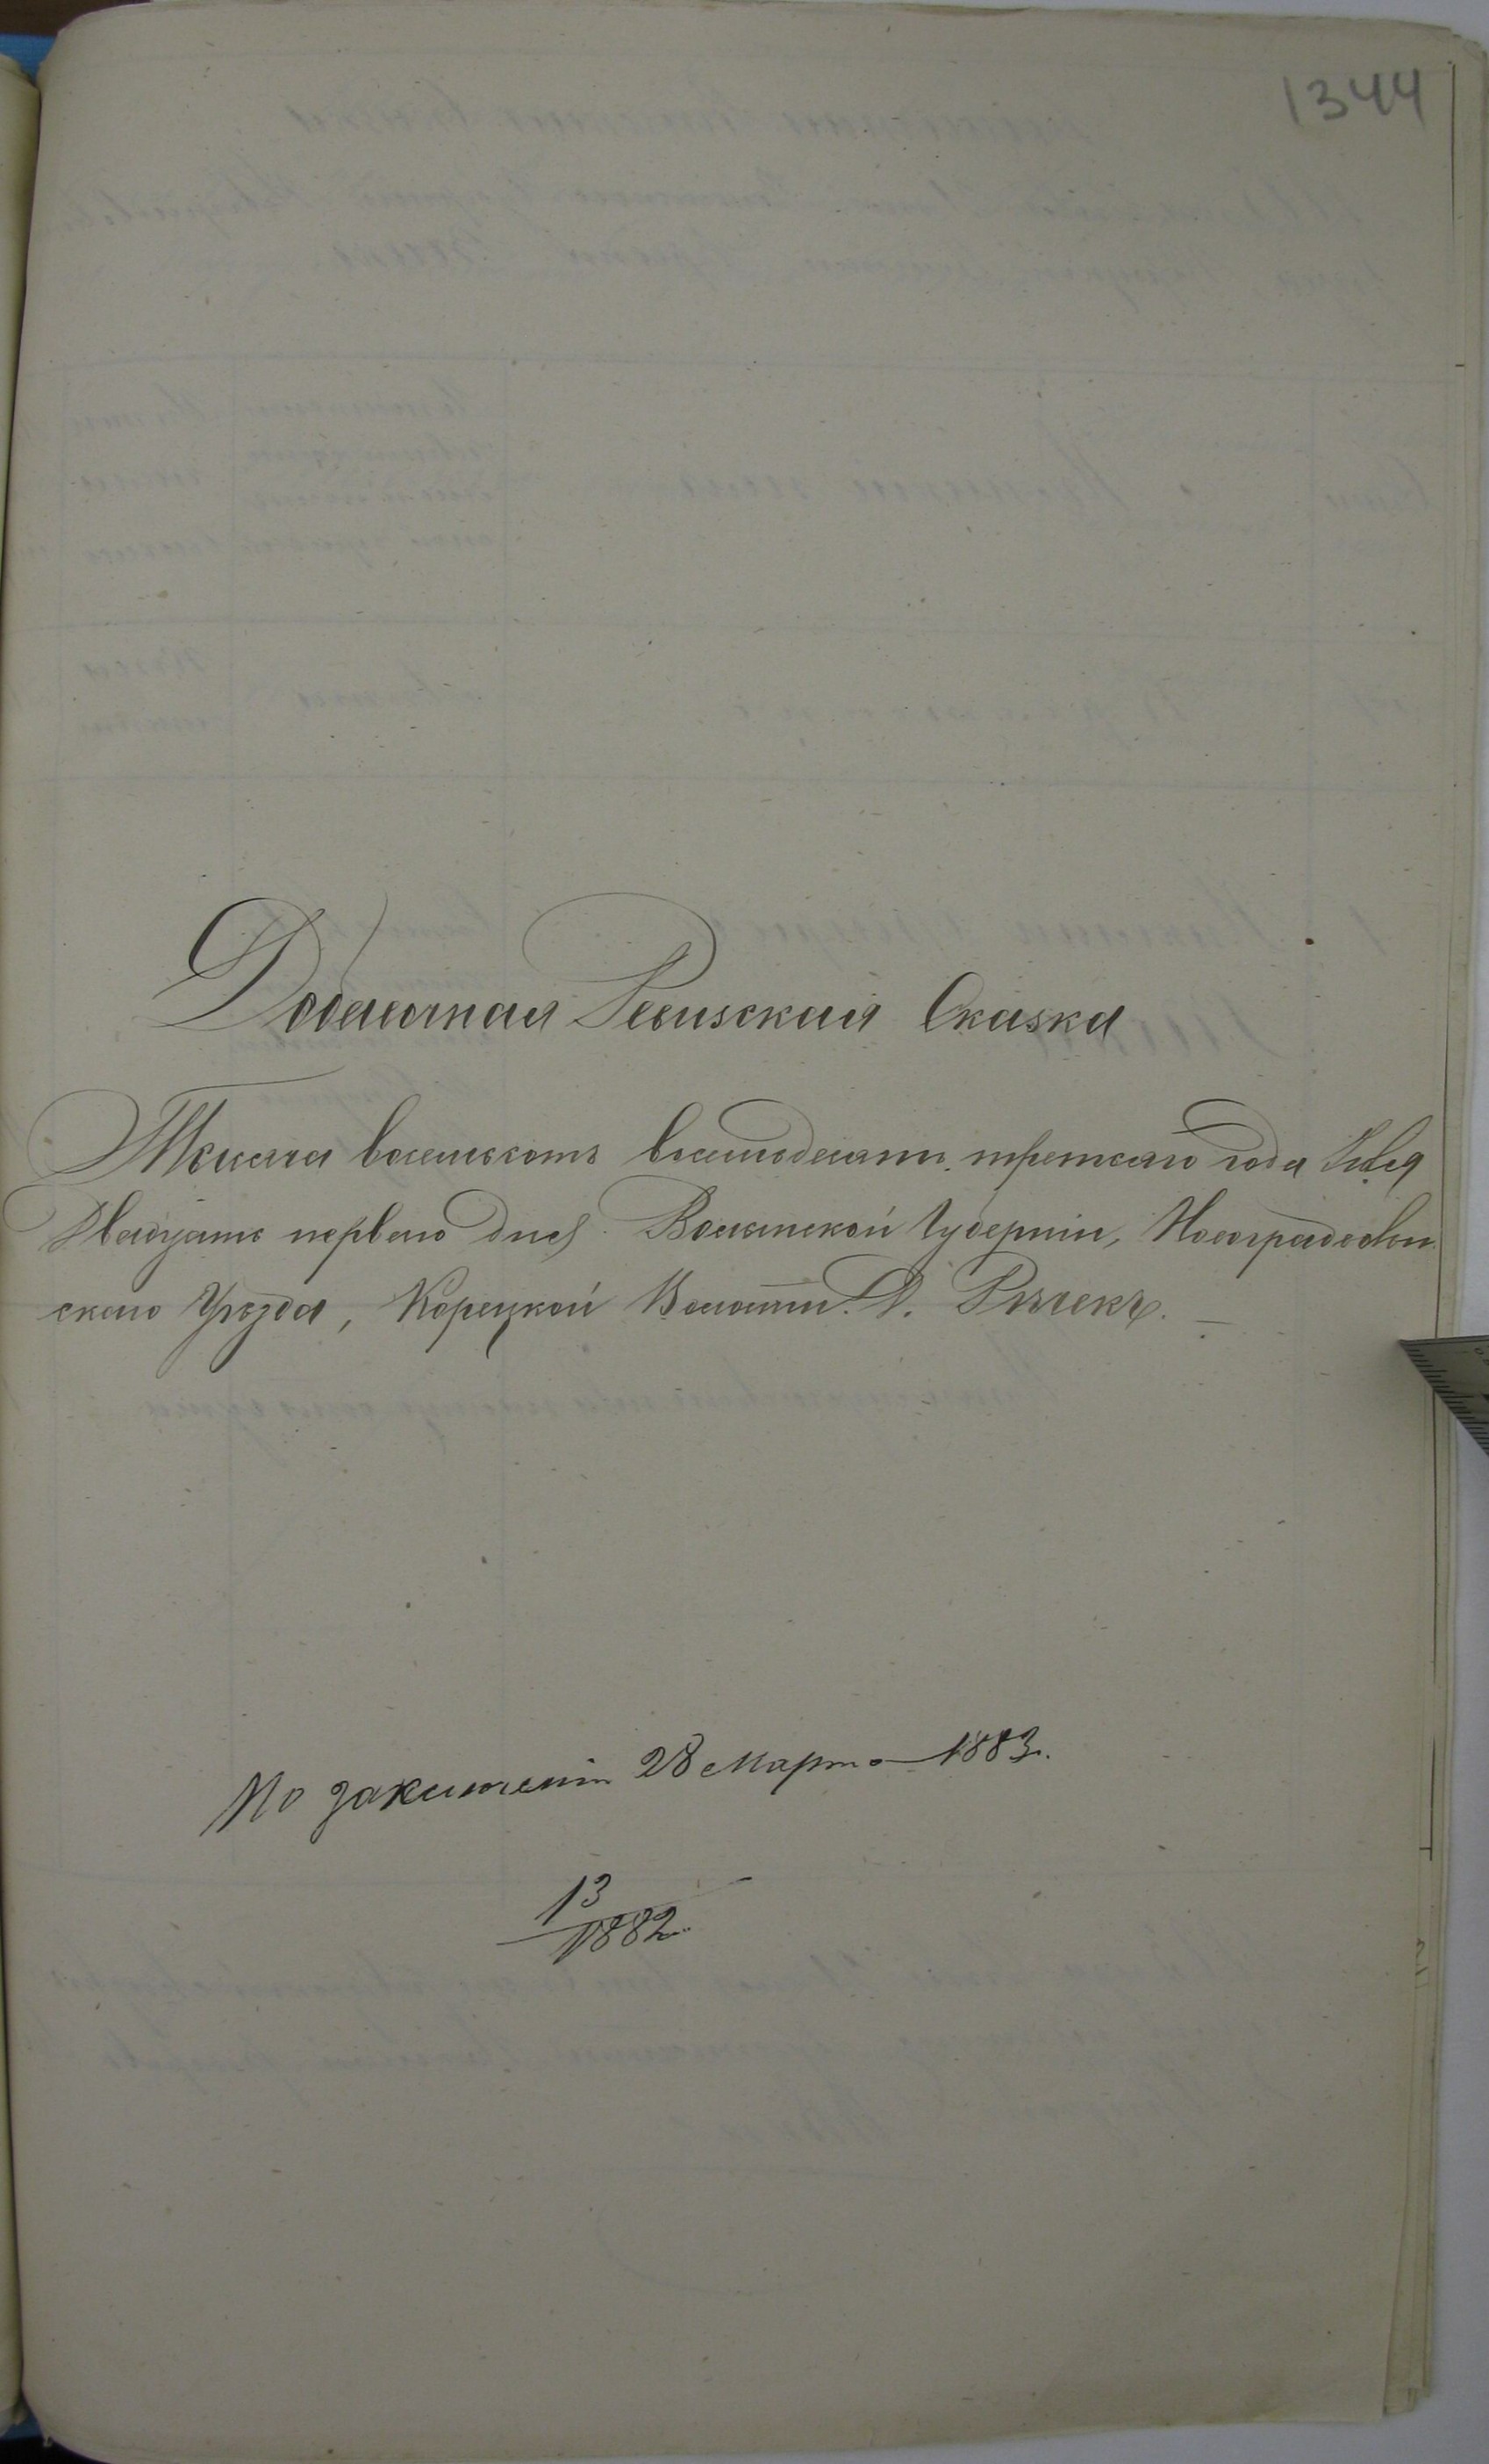 1344
Добавочная Ревизская Сказка
Тысяча восемьсотъ восемьдесятъ третьяго года
двадцать перваго дня. Волынской Губерніи, Новоградволын
скаго Уѣзда, Корецкой Волости. Д. Рѣчекъ.
По заключенію 28 Марта 1883.
13
1882